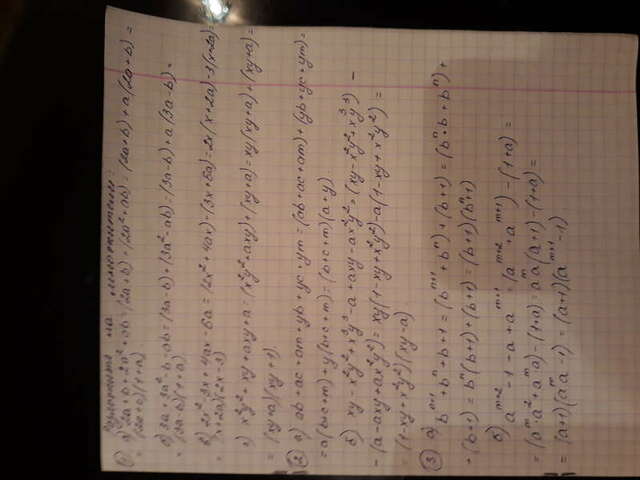 Разложите на множители:
① а) 2a+b+2a²+ab=(2a+b)+(2a²+ab)=(2a+b)+a(2a+b)=
= (2a+b)(1+a).
б) 3a+3a²-b-ab=(3a-b)+(3a²-ab)=(3a-b)+a(3a-b)=
= (3a-b)(1+a)
в) 2x²-3x+4ax-6a=(2x²+4ax)-(3x+6a)=2x(x+2a)-3(x+2a)=
(x+2a)(2x-3)
г) x²y²+xy+axy+a=(x²y²+axy)+(xy+a)=xy(xy+a)+(xy+a)=
= (xy+a)(xy+1).
② а) ab+ac+am+yb+yc+ym=(ab+ac+am)+(yb+yc+ym)=
= a(b+c+m)+y(b+c+m)=(b+c+m)(a+y).
б) xy-x²y²+x³y³-a+axy-ax²y²=(xy-x²y²+x³y³) -
- (a-axy+ax²y²)= xy(1-xy+x²y²)-a(1-xy+x²y²) =
= (1-xy+x²y²)(xy-a)
③ а) bⁿ⁺¹+bⁿ+b+1=(bⁿ⁺¹+bⁿ)+(b+1)=(bⁿ·b+bⁿ)+
+(b+1)=bⁿ(b+1)+(b+1)=(b+1)(bⁿ+1)
б) aᵐ⁺²-1-a+aᵐ⁺¹=(aᵐ⁺²+aᵐ⁺¹)-(1+a)=
= (aᵐ·a²+aᵐ·a)-(1+a)=aᵐa(a+1)-(1+a)=
= (a+1)(aᵐa-1)=(a+1)(aᵐ⁺¹-1)